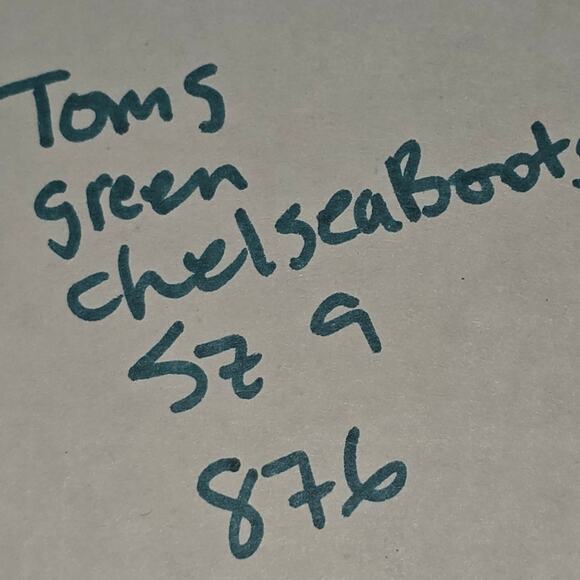 Toms
green
chelsea Boots
Sz 9
876